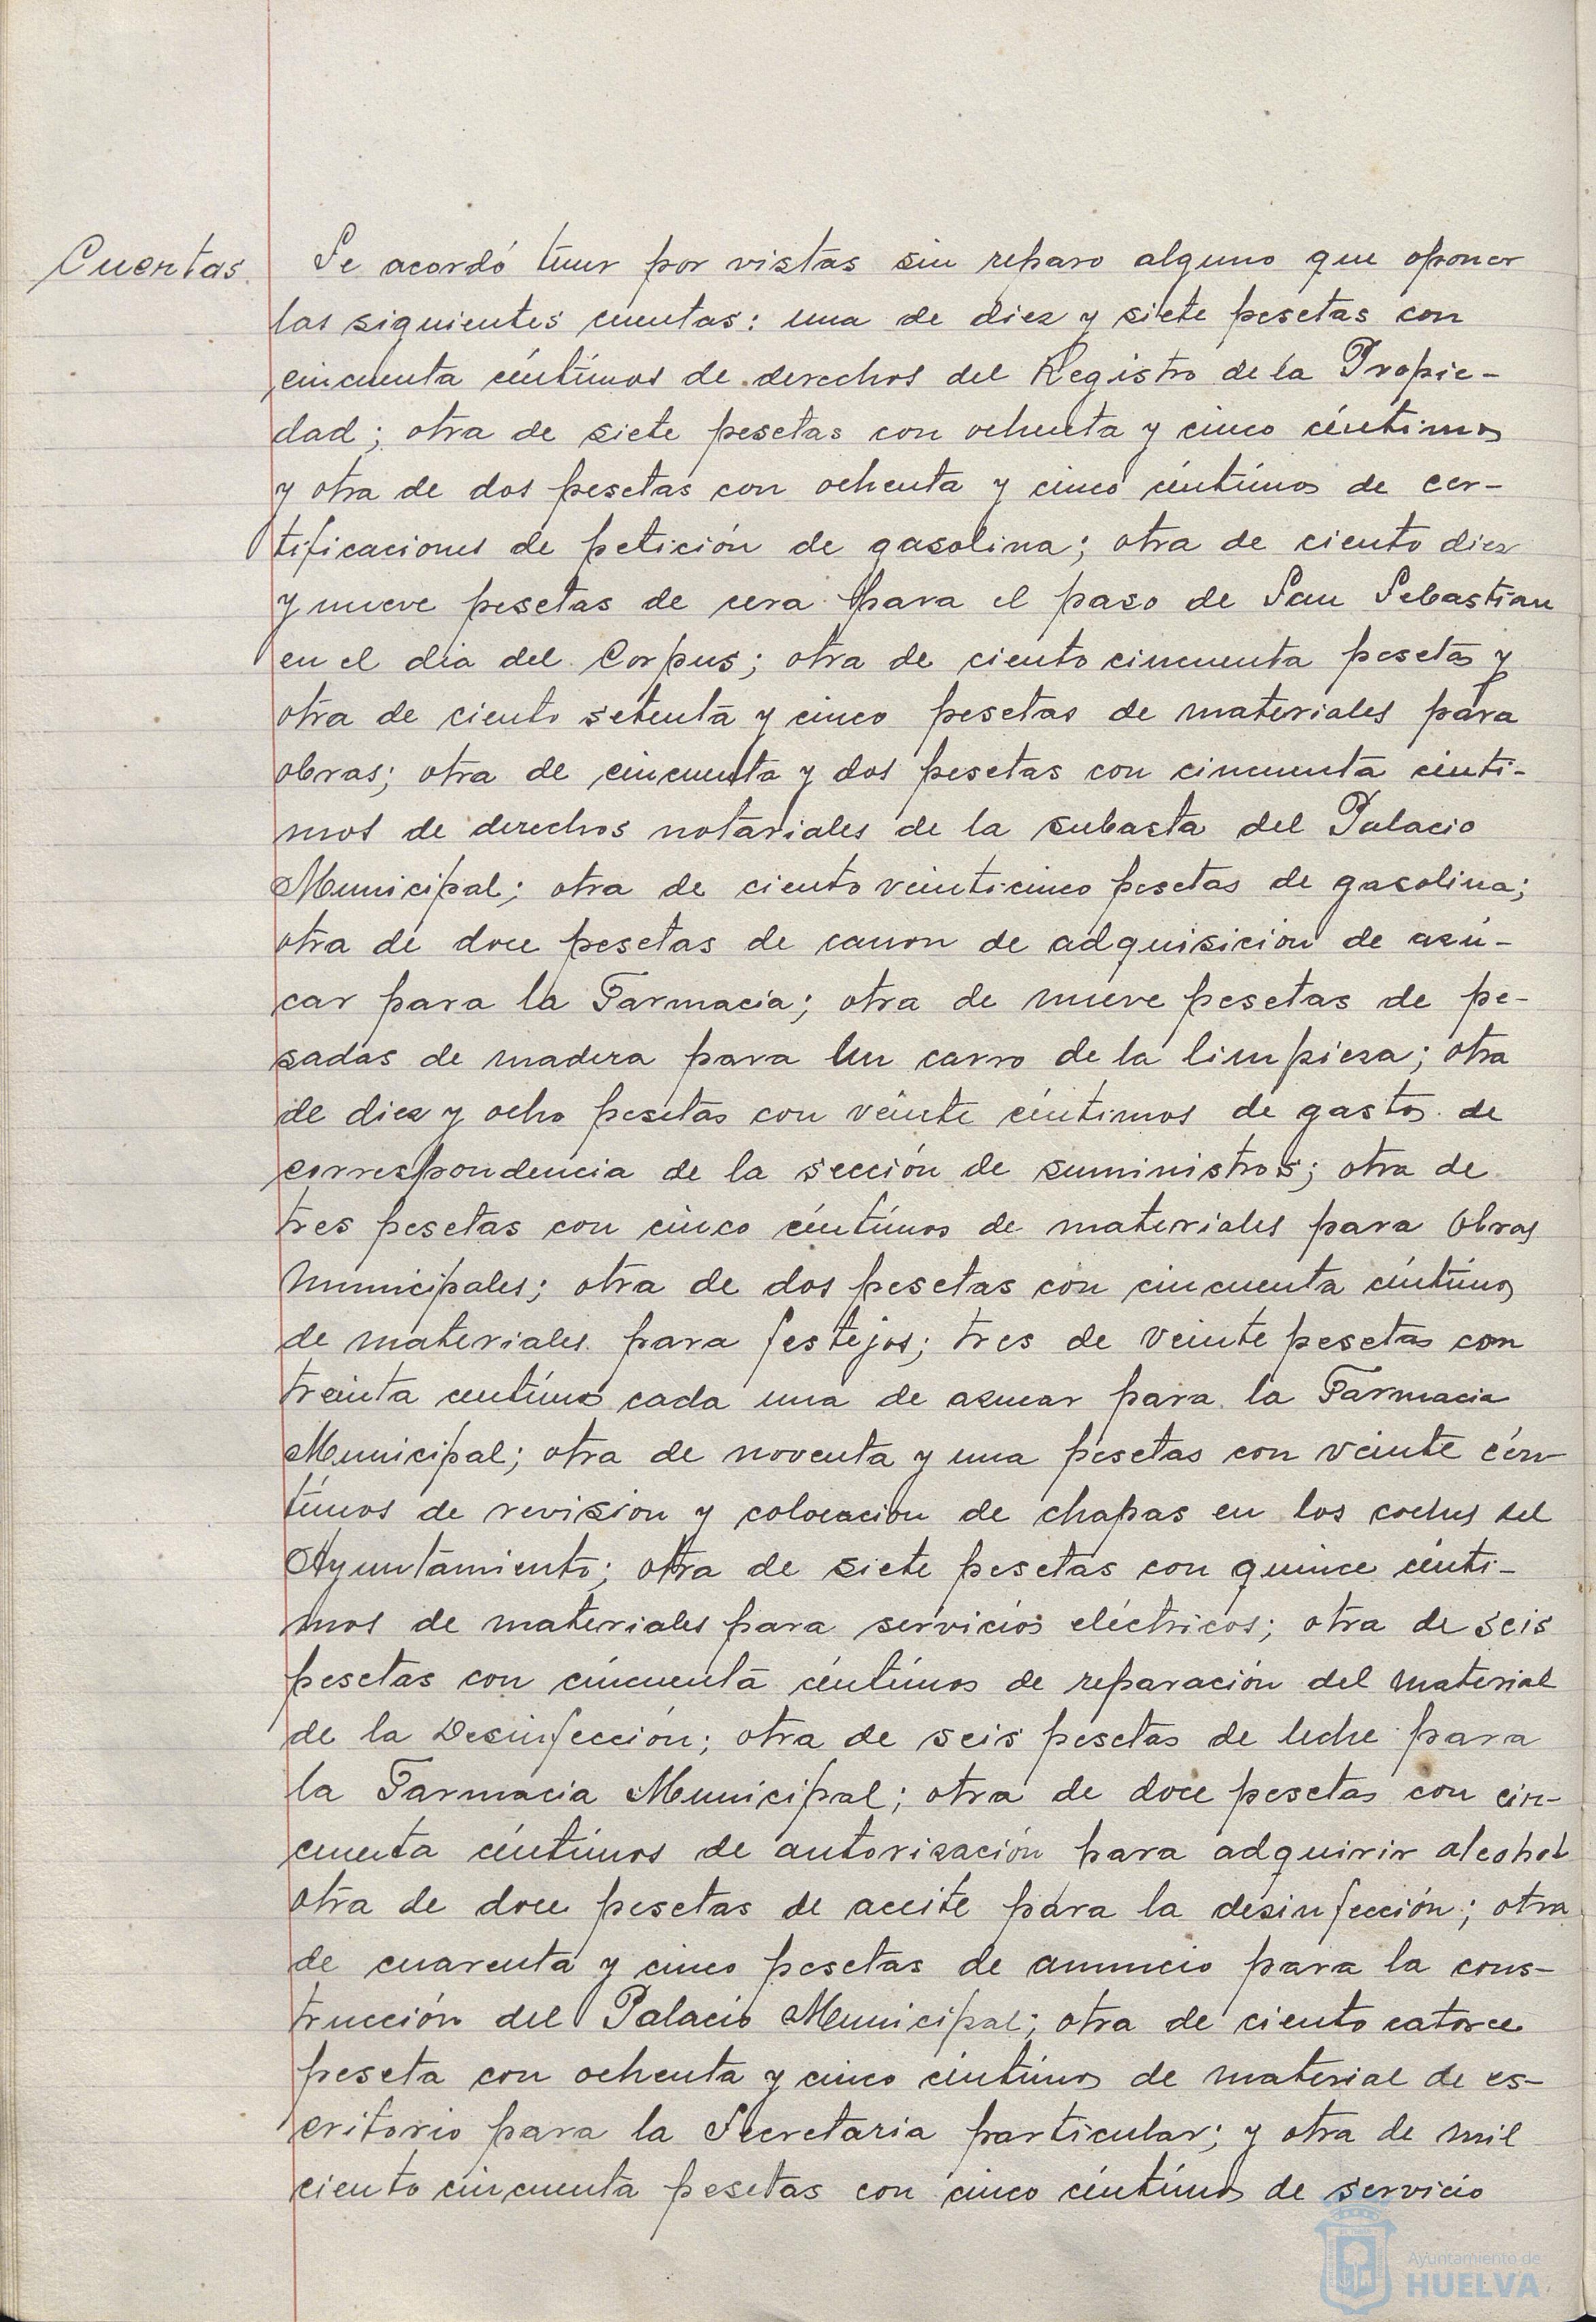 Cuentas
Se acordó tener por vistas sin reparo alguno que oponer
las siguientes cuentas: una de diez y siete pesetas con
cincuenta céntimos de derechos del Registro de la Propie-
dad; otra de siete pesetas con ochenta y cinco céntimos
y otra de dos pesetas con ochenta y cinco céntimos de cer-
tificaciones de petición de gasolina; otra de ciento diez
y nueve pesetas de cera para el paso de San Sebastian
en el dia del Corpus; otra de ciento cincuenta pesetas y
otra de ciento setenta y cinco pesetas de materiales para
obras; otra de cincuenta y dos pesetas con cincuenta cénti-
mos de derechos notariales de la subasta del Palacio
Municipal; otra de ciento veinticinco pesetas de gasolina;
otra de doce pesetas de canon de adquisición de azú-
car para la Farmacia; otra de nueve pesetas de pe-
sadas de madera para un carro de la limpieza; otra
de diez y ocho pesetas con veinte céntimos de gastos de
correspondencia de la sección de suministros; otra de
tres pesetas con cinco céntimos de materiales para Obras
Municipales; otra de dos pesetas con cincuenta céntimos
de materiales para festejos; tres de veinte pesetas con
treinta centimos cada una de azucar para la Farmacia
Municipal; otra de noventa y una pesetas con veinte cén-
timos de revision y colocacion de chapas en los coches del
Ayuntamiento; otra de siete pesetas con quince cénti-
mos de materiales para servicios eléctricos; otra de seis
pesetas con cincuenta céntimos de reparación del material
de la Desinfección; otra de seis pesetas de leche para
la Farmacia Municipal; otra de doce pesetas con cin-
cuenta céntimos de autorización para adquirir alcohol
otra de doce pesetas de aceite para la desinfección; otra
de cuarenta y cinco pesetas de anuncio para la cons-
trucción del Palacio Municipal; otra de ciento catorce
peseta con ochenta y cinco céntimos de material de es-
critorio para la Secretaria particular; y otra de mil
ciento cincuenta pesetas con cinco céntimos de servicio
Ayuntamiento de
HUELVA